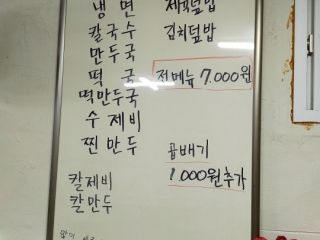 냉 면
칼국수
만두국
떡 국
떡만두국
수 제비
찐 만두
칼제비
칼만두
제육덮밥
김치덮밥
전메뉴 7,000원
곱배기
1,000원추가